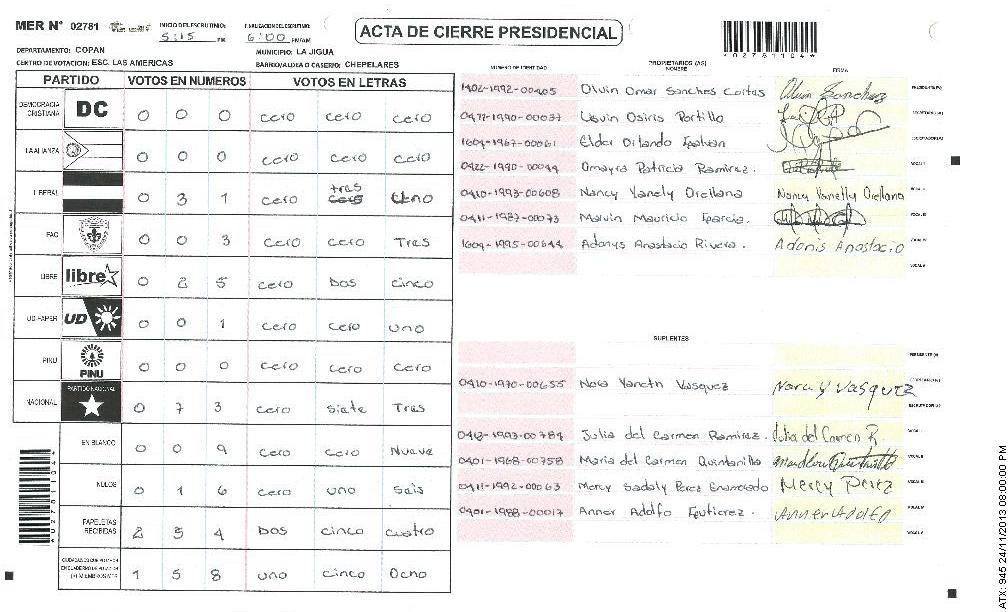 MER N° 02781
INICIO DEL ESCRUTINIO: 5:15 PM
FINALIZACION DEL ESCRUTINIO: 6:00 PM/AM
ACTA DE CIERRE PRESIDENCIAL
*02781104*
DEPARTAMENTO: COPAN
MUNICIPIO: LA JIGUA
CENTRO DE VOTACION: ESC. LAS AMERICAS
BARRIO/ALDEA O CASERIO: CHEPELARES
PARTIDO VOTOS EN NUMEROS VOTOS EN LETRAS
DEMOCRACIA CRISTIANA DC 0 0 0 cero cero cero
LA ALIANZA 0 0 0 cero cero cero
LIBERAL 0 3 1 cero tres uno
FAC 0 0 3 cero cero Tres
LIBRE libre 0 2 5 cero Dos cinco
UD-FAPER UD 0 0 1 cero cero uno
PINU PINU 0 0 0 cero cero cero
NACIONAL PARTIDO NACIONAL 0 7 3 cero siete Tres
EN BLANCO 0 0 9 cero cero Nueve
NULOS 0 1 6 cero uno Seis
PAPELETAS RECIBIDAS 2 5 4 Dos cinco cuatro
1 5 8 uno cinco Ocho
NUMERO DE IDENTIDAD
PROPIETARIOS (AS)
NOMBRE
FIRMA
1402-1992-00405 Olvin Omar Sanches Cortes Olvin Sanchez
0422-1990-00037 Osiris Portillo
1604-1967-00061 Elder Orlando
0422-1990-00044 Omayra Patricia Ramirez.
0410-1993-00608 Nancy Yanely Orellana Nancy Yanelly Orellana
0411-1987-00073 Marvin Mauricio
1604-1995-00644 Adonys Anastacio Rivera. Adonis Anastacio
SUPLENTES
0410-1970-00655 Yaneth Vasquez Nora y Vasquez
0412-1993-00784 Julia del Carmen Ramirez. Julia del Carmen R.
0401-1968-00758 Maria del Carmen Quintanilla
0411-1992-00063 Mercy Perez Mercy Perez
0401-1988-00017 Anner Adolfo Anner Adolfo
ATX: 945 24/11/2013 08:00:00 PM